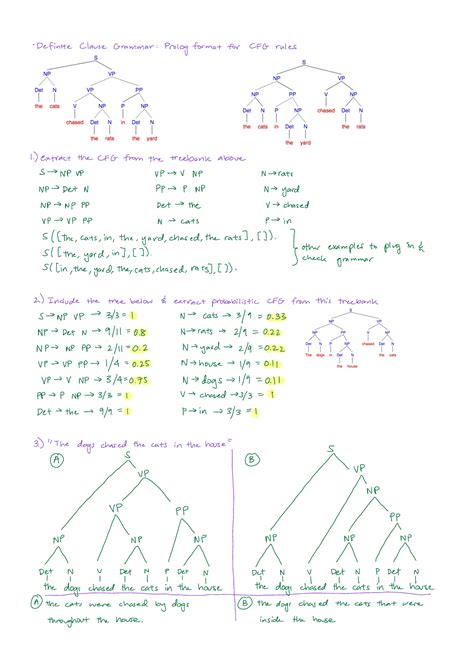 ·Definite Clause Grammar: Prolog format for CFG rules
S
NP VP
Det N VP PP
the cats V NP P NP
chased Det N in Det N
the rats the yard
S
NP VP
NP PP V NP
Det N P NP chased Det N
the cats in Det N the rats
the yard
1.) Extract the CFG from the treebank above
S → NP VP VP → V NP N → rats
NP → Det N PP → P NP N → yard
NP → NP PP Det → the V → chased
VP → VP PP N → cats P → in
S([the, cats, in, the, yard, chased, the, rats], []).
S([the, yard, in], []).
S([in, the, yard, the, cats, chased, rats], []).
other examples to plug in &
check grammar
2.) Include the tree below & extract probabilistic CFG from this treebank
S → NP VP → 3/3 = 1 N → cats → 3/9 = 0.33
NP → Det N → 9/11 = 0.8 N → rats → 2/9 = 0.22
NP → NP PP → 2/11 = 0.2 N → yard → 2/9 = 0.22
VP → VP PP → 1/4 = 0.25 N → house → 1/9 = 0.11
VP → V NP → 3/4 = 0.75 N → dogs → 1/9 = 0.11
PP → P NP → 3/3 = 1 V → chased → 3/3 = 1
Det → the → 9/9 = 1 P → in → 3/3 = 1
S
NP VP
NP PP V NP
Det N P NP chased Det N
The dogs in Det N the cats
the house
3.) "The dogs chased the cats in the house"
A
S
VP
VP PP
NP NP NP
Det N V Det N P Det N
the dogs chased the cats in the house
A the cats were chased by dogs
throughout the house.
B
S
VP
NP
PP
NP NP NP
Det N V Det N P Det N
the dogs chased the cats in the house
B the dogs chased the cats that were
inside the house